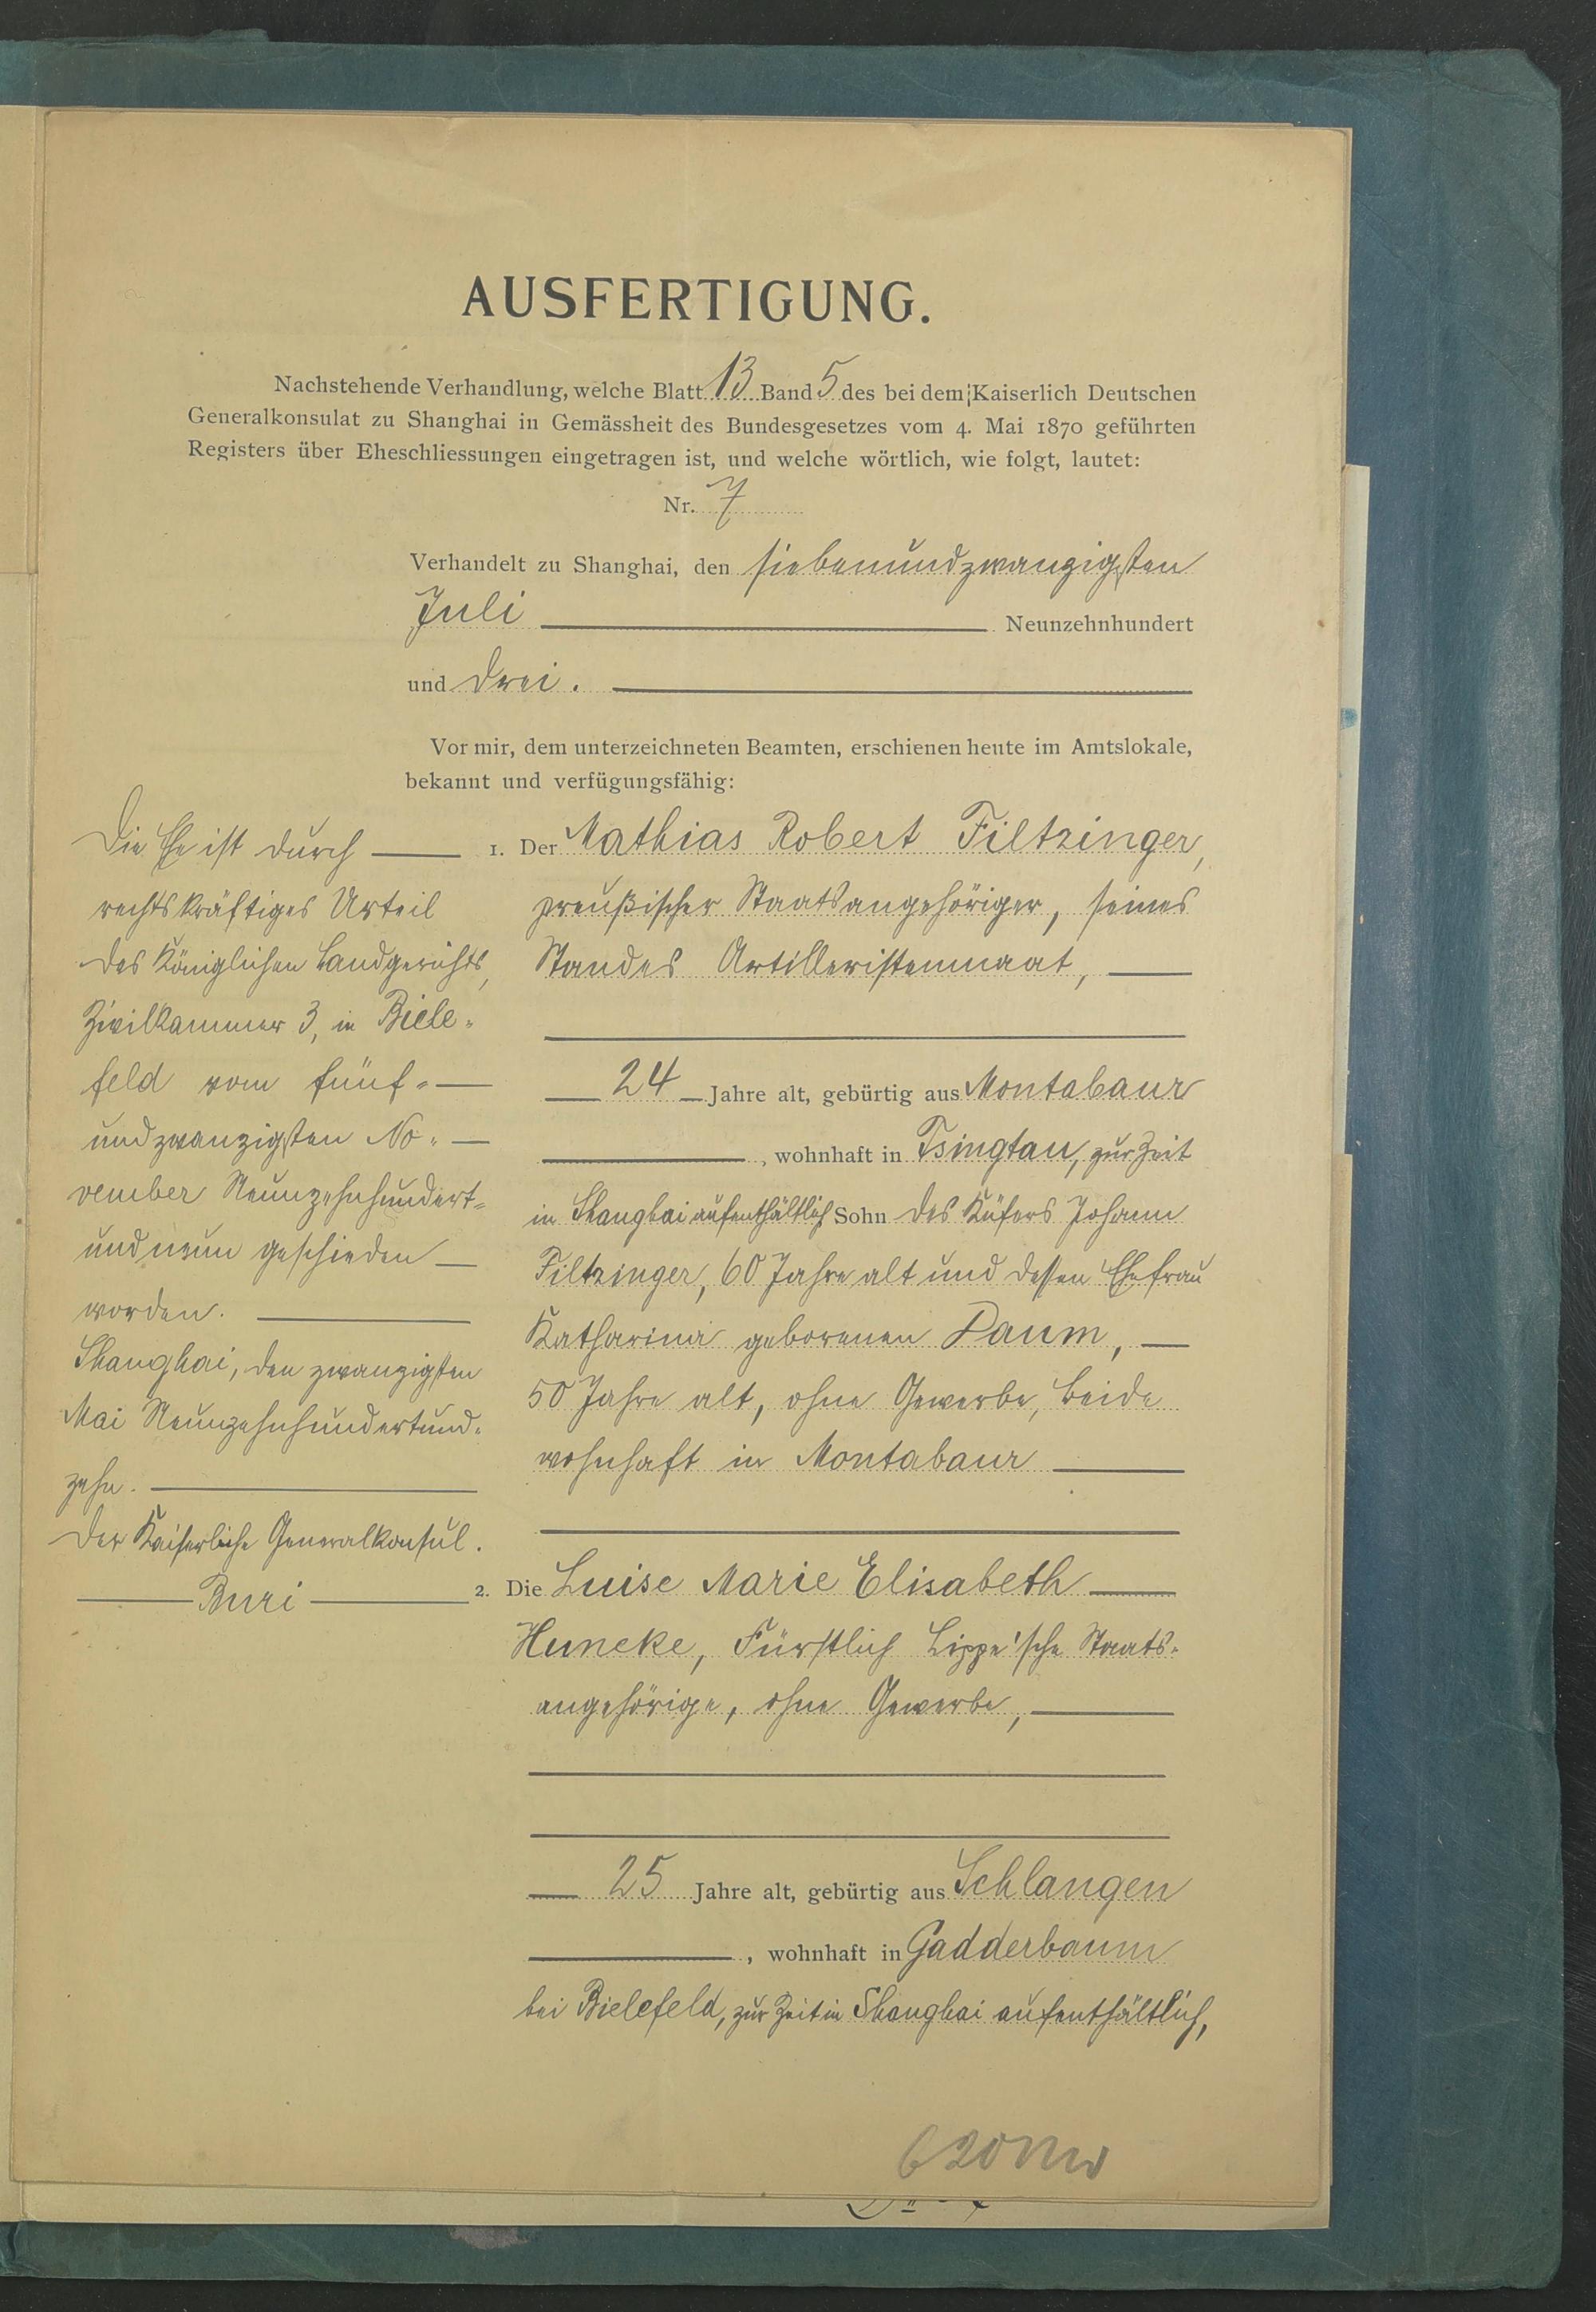 AUSFERTIGUNG.
Nachstehende Verhandlung, welche Blatt 13 Band 5 des bei dem Kaiserlich Deutschen
Generalkonsulat zu Shanghai in Gemässheit des Bundesgesetzes vom 4. Mai 1870 geführten
Registers über Eheschliessungen eingetragen ist, und welche wörtlich, wie folgt, lautet:
Nr. 7
Verhandelt zu Shanghai, den siebenundzwanzigsten
Juli Neunzehnhundert
und drei.
Vor mir, dem unterzeichneten Beamten, erschienen heute im Amtslokale,
bekannt und verfügungsfähig:
1. Der Mathias Robert Filtzinger,
preußischer Staatsangehöriger, seines
Standes Artilleristenmaat,
24 Jahre alt, gebürtig aus Montabaur
, wohnhaft in Tsingtau, zur Zeit
in Shanghai aufenthältlich Sohn des Küfers Johann
Filtzinger, 60 Jahre alt und dessen Ehefrau
Katharina geborenen Daum,
50 Jahre alt, ohne Gewerbe, beide
wohnhaft in Montabaur
2. Die Luise Marie Elisabeth
Huneke, Fürstlich Lippe'sche Staats-
angehörige, ohne Gewerbe,
25 Jahre alt, gebürtig aus Schlangen
, wohnhaft in Gadderbaum
bei Bielefeld, zur Zeit in Shanghai aufenthältlich,
Die Ehe ist durch
rechtskräftiges Urteil
des Königlichen Landgerichts,
Zivilkammer 3, in Biele-
feld vom fünf-
undzwanzigsten No-
vember Neunzehnhundert-
undneun geschieden
worden.
Shanghai, den zwanzigsten
Mai Neunzehnhundertund-
zehn.
Der Kaiserliche Generalkonsul.
Buri